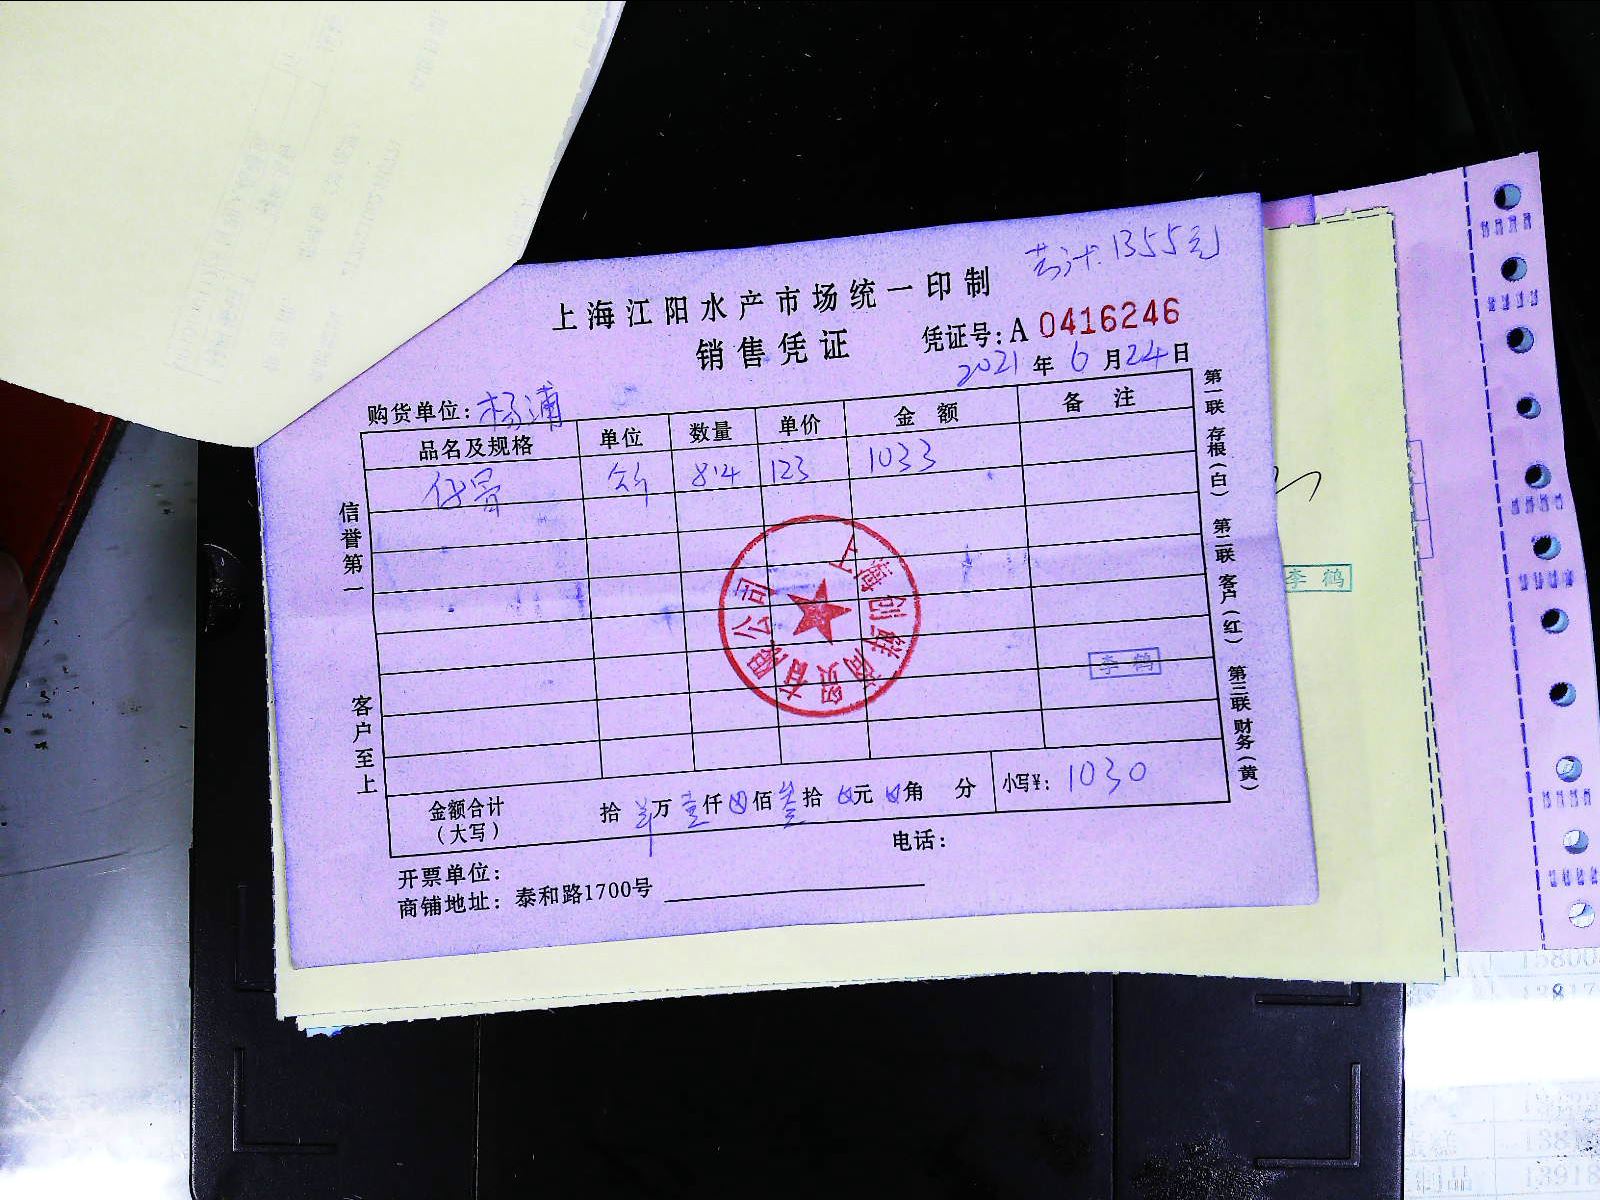 共计.1355元
上海江阳水产市场统一印制
销售凭证 凭证号:A 0416246
2021年6月24日
购货单位:杨浦
品名及规格 单位 数量 单价 金额 备注
斤 8.4 123 1033
信誉第一
客户至上
上海创鲜商贸有限公司
李鹤
金额合计(大写) 拾 万壹仟 佰叁拾 元 角 分 小写¥: 1030
开票单位: 电话:
商铺地址: 泰和路1700号
第一联 存根(白) 第二联 客户(红) 第三联 财务(黄)
李鹤